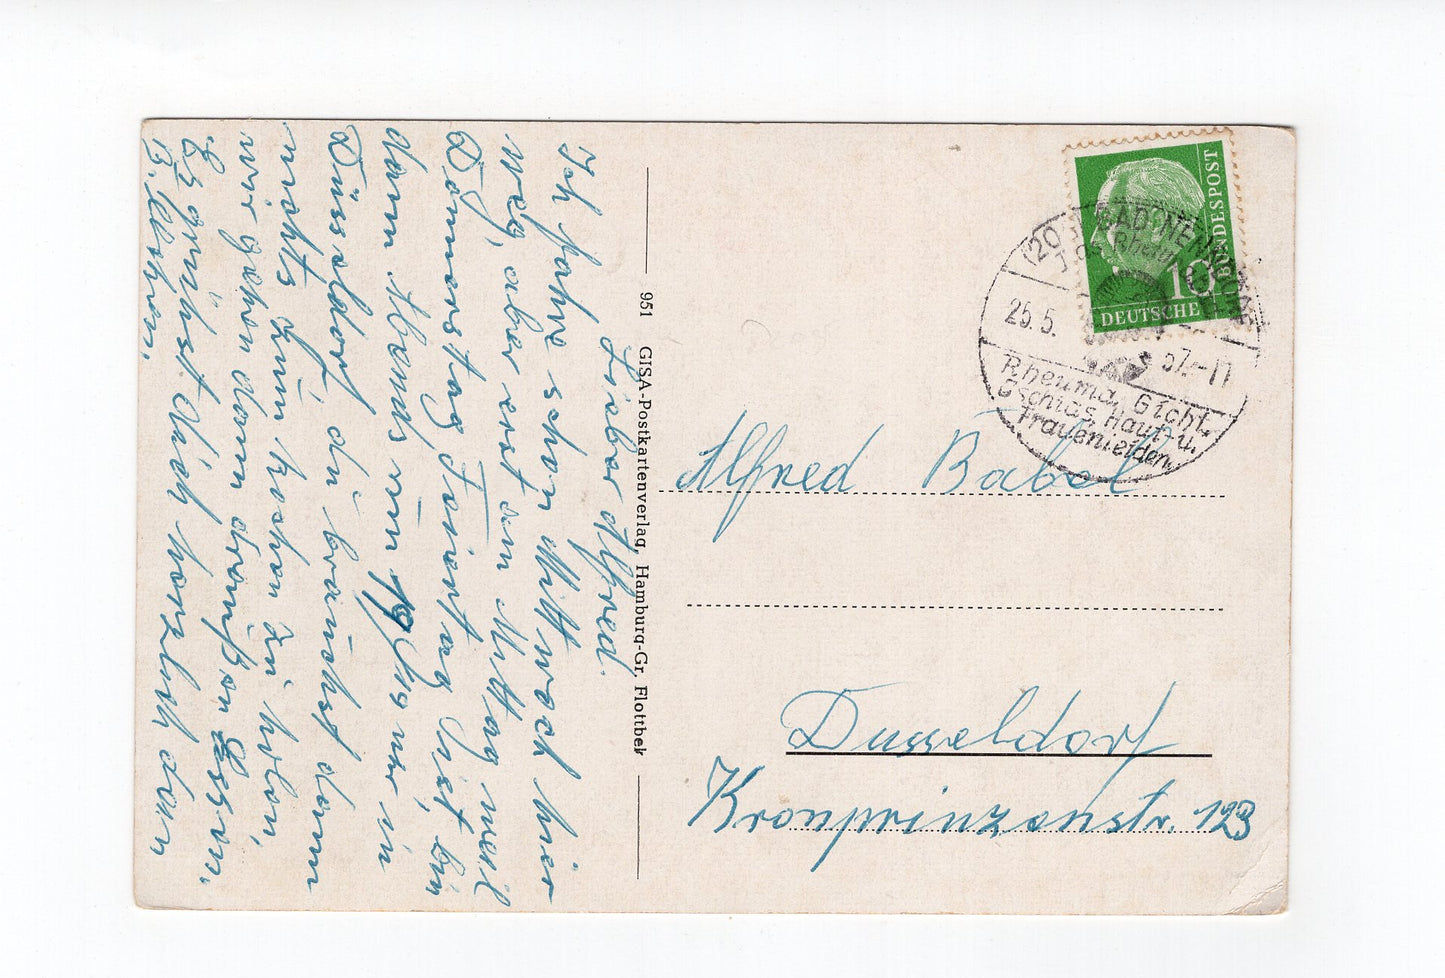 Lieber Alfred.
Ich fahre schon Mittwoch hier
weg, aber erst am Mittag weil
Donnerstag Feiertag ist, bin
dann Abends um 19 Uhr in
Düsseldorf, du brauchst dann
nichts zum kochen zu holen,
wir gehen dann draußen Essen.
Es grüßt dich herzlich dein
B. Uschen.
951 GISA-Postkartenverlag, Hamburg-Gr. Flottbek
DEUTSCHE BUNDESPOST
10
(20) BAD NENNDORF
25.5. 57.-17
Rheuma, Gicht,
Ischias, Haut- u.
Frauenleiden
Alfred Babel
Dusseldorf
Kronprinzenstr. 123